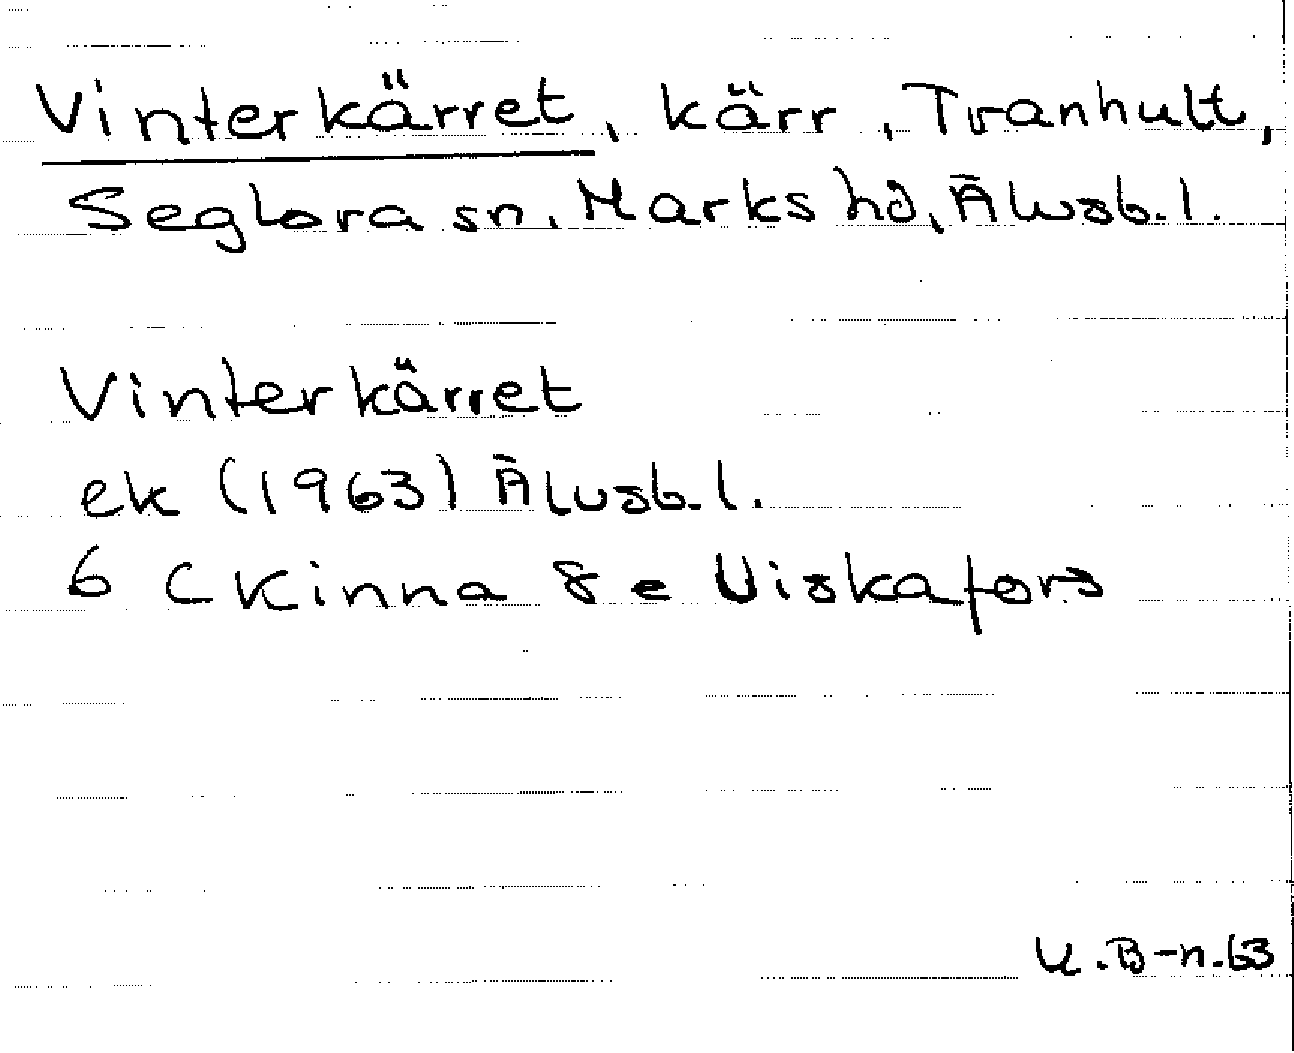 Vinterkärret, kärr, Tranhult,
Seglora sn, Marks hd, Älvsb.l.
Vinterkärret
ek (1963) Älvsb.l.
6 C Kinna 8 e Viskafors
U.B-n.63